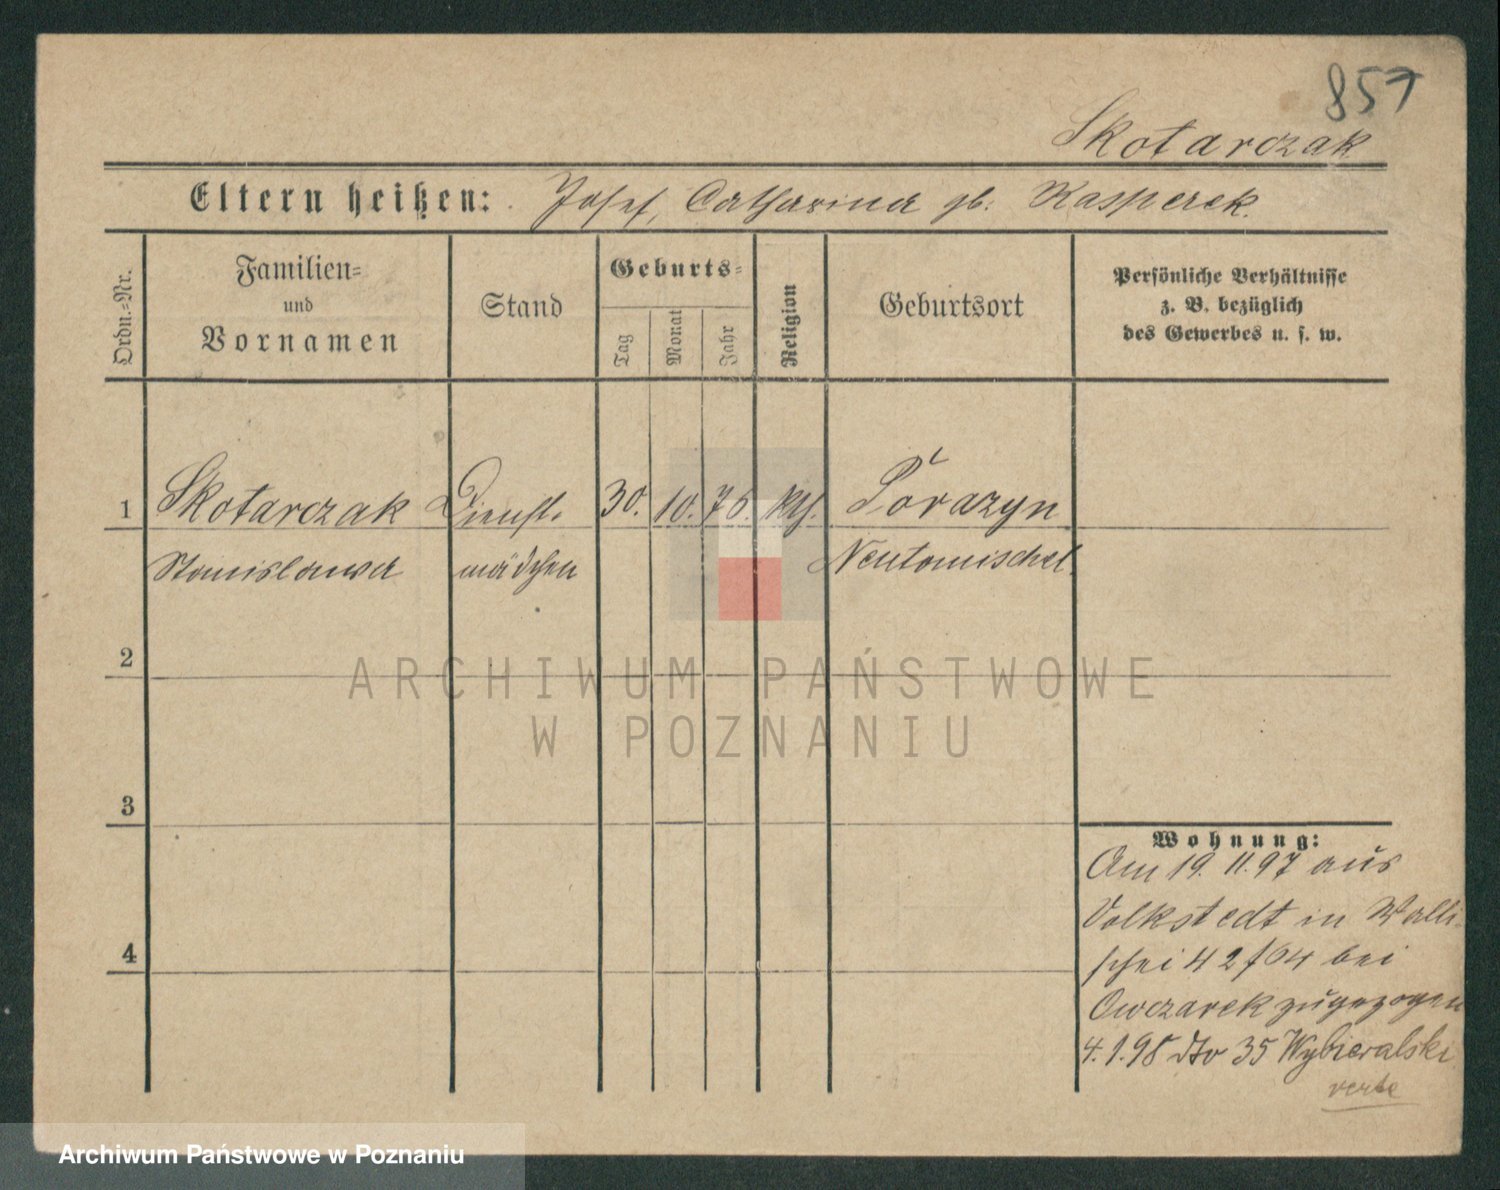 857
Skotarczak
Eltern heißen: Josef, Catharina gb. Kasperek.
Ordn.-Nr.
Familien-
und
Vornamen
Stand
Geburts-
Tag
Monat
Jahr
Religion
Geburtsort
Persönliche Verhältnisse
z. B. bezüglich
des Gewerbes u. s. w.
1 Skotarczak Dienst- 30. 10. 76. kth. Porazyn
Stanislawa mädchen Neutomischel.
2
ARCHIWUM PAŃSTWOWE
W POZNANIU
3
Wohnung:
Am 19. 11. 97 aus
Volkstedt in Walli-
4
schei 42/04 bei
Owczarek zugezogen
4. 1. 98 dto 35 Wybieralski
verte
Archiwum Państwowe w Poznaniu